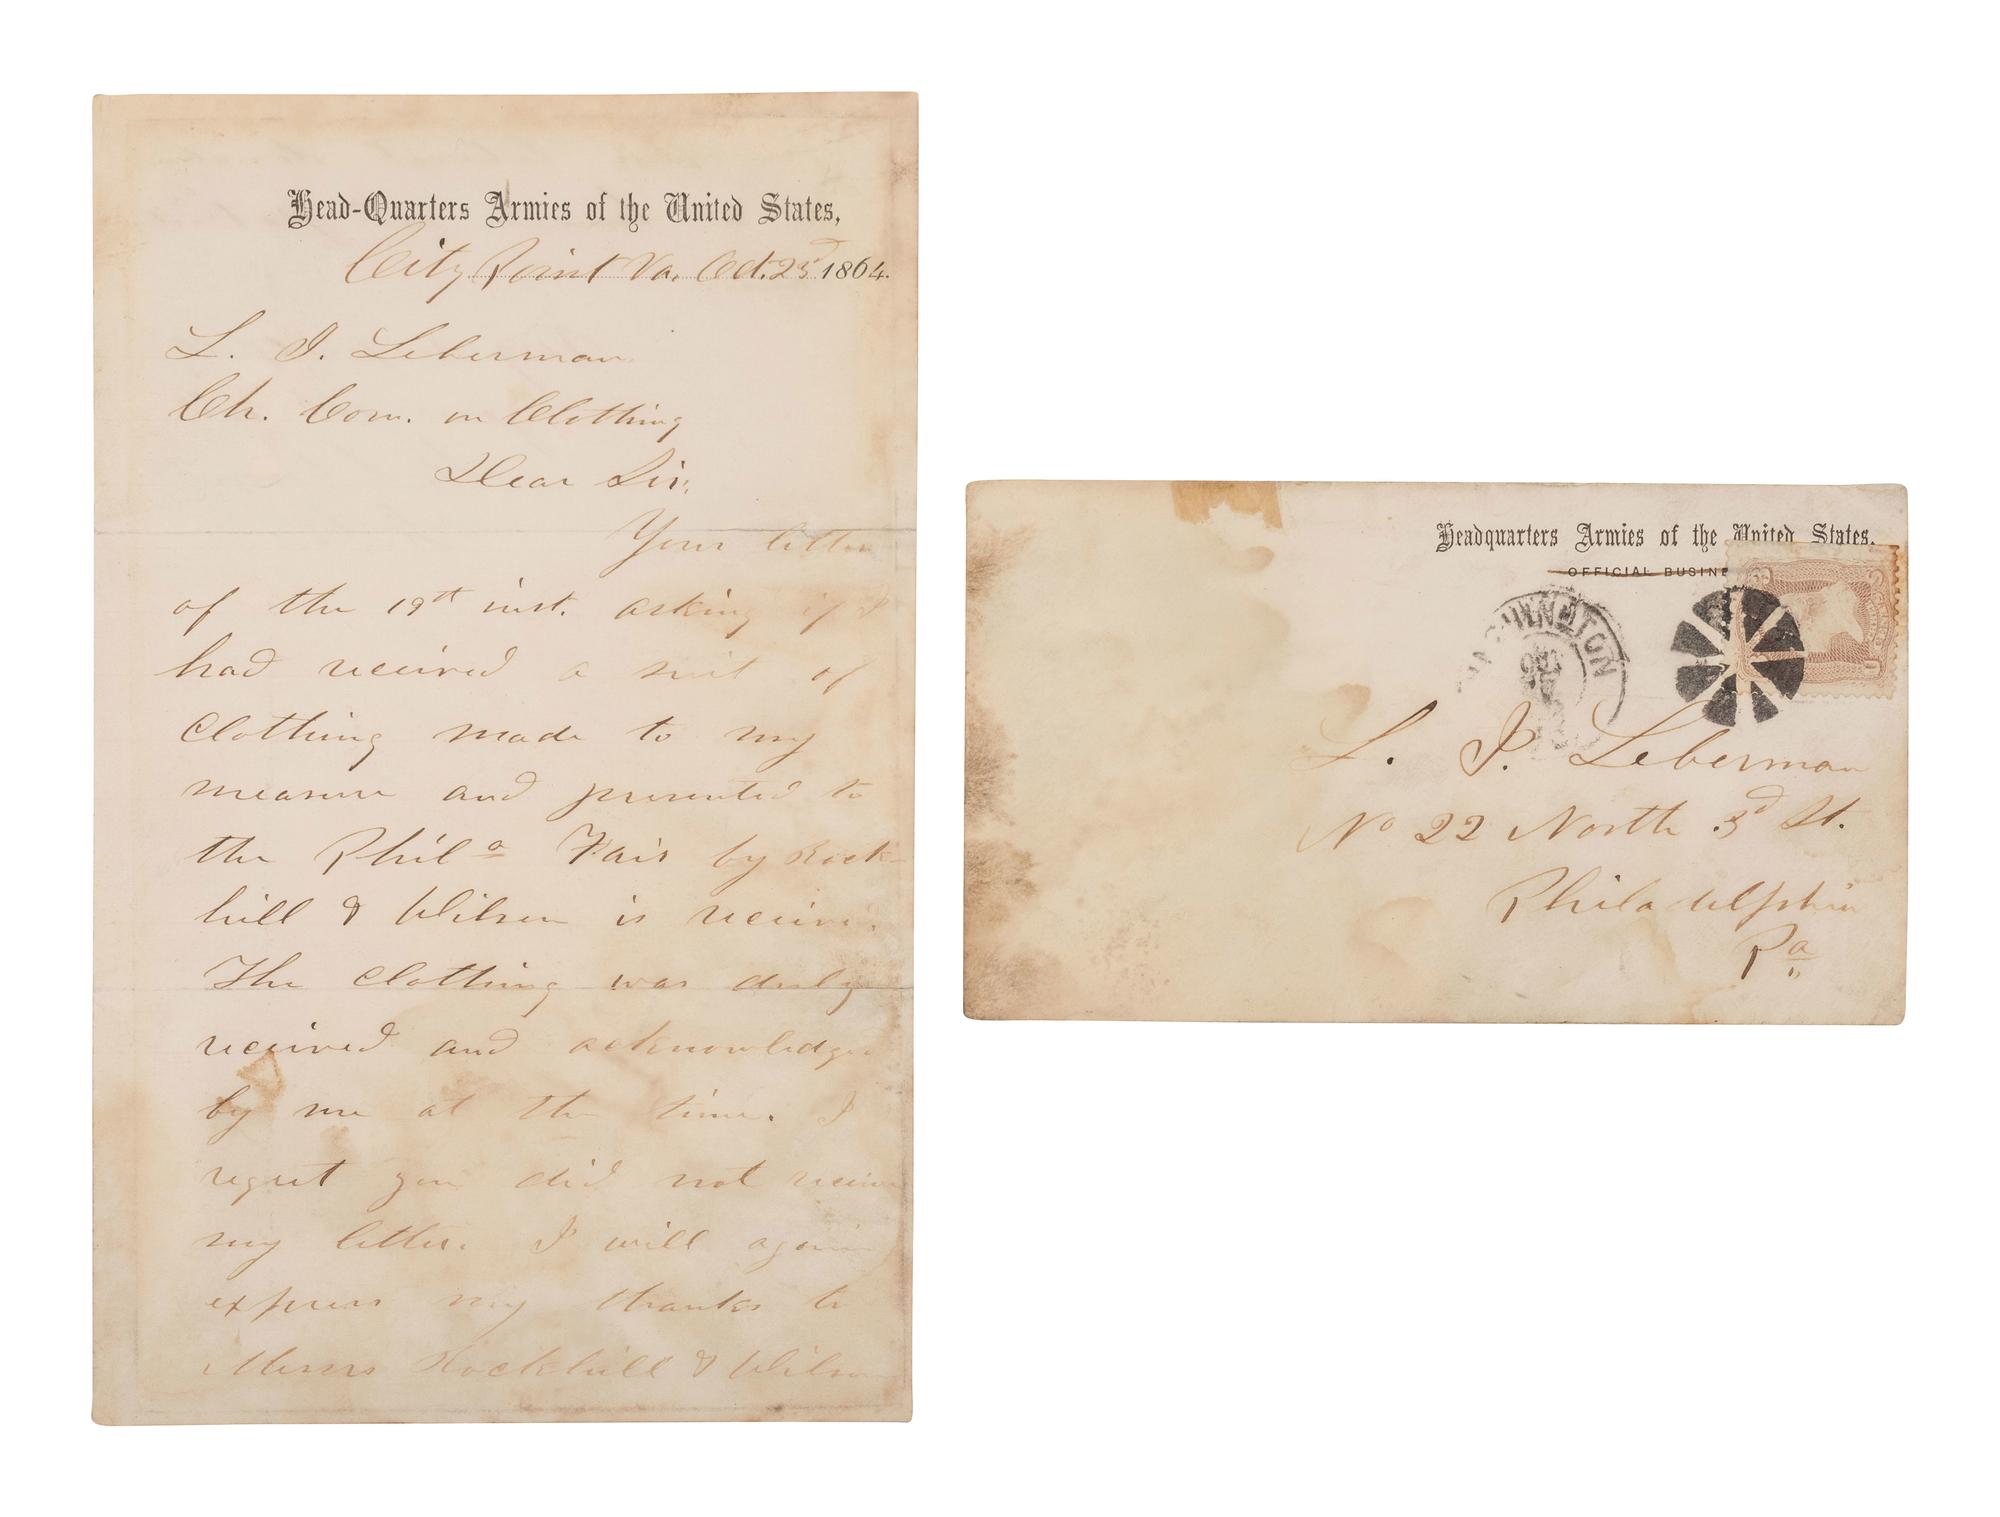 Head-Quarters Armies of the United States,
City Point Va. Oct. 23d 1864.
L. J. Leberman
Ch. Com. on Clothing
Dear Sir:
Your letter
of the 19th inst. asking if I
had received a suit of
clothing made to my
measure and presented to
the Phila Fair by Rock-
hill & Wilson is received.
The clothing was duly
received and acknowledged
by me at the time. I
regret you did not receive
my letter. I will again
express my thanks to
Messrs Rockhill & Wilson
Headquarters Armies of the United States.
OFFICIAL BUSINE
WASHINGTON
OCT
L. J. Leberman
No 22 North 3d St.
Philadelphia
Pa